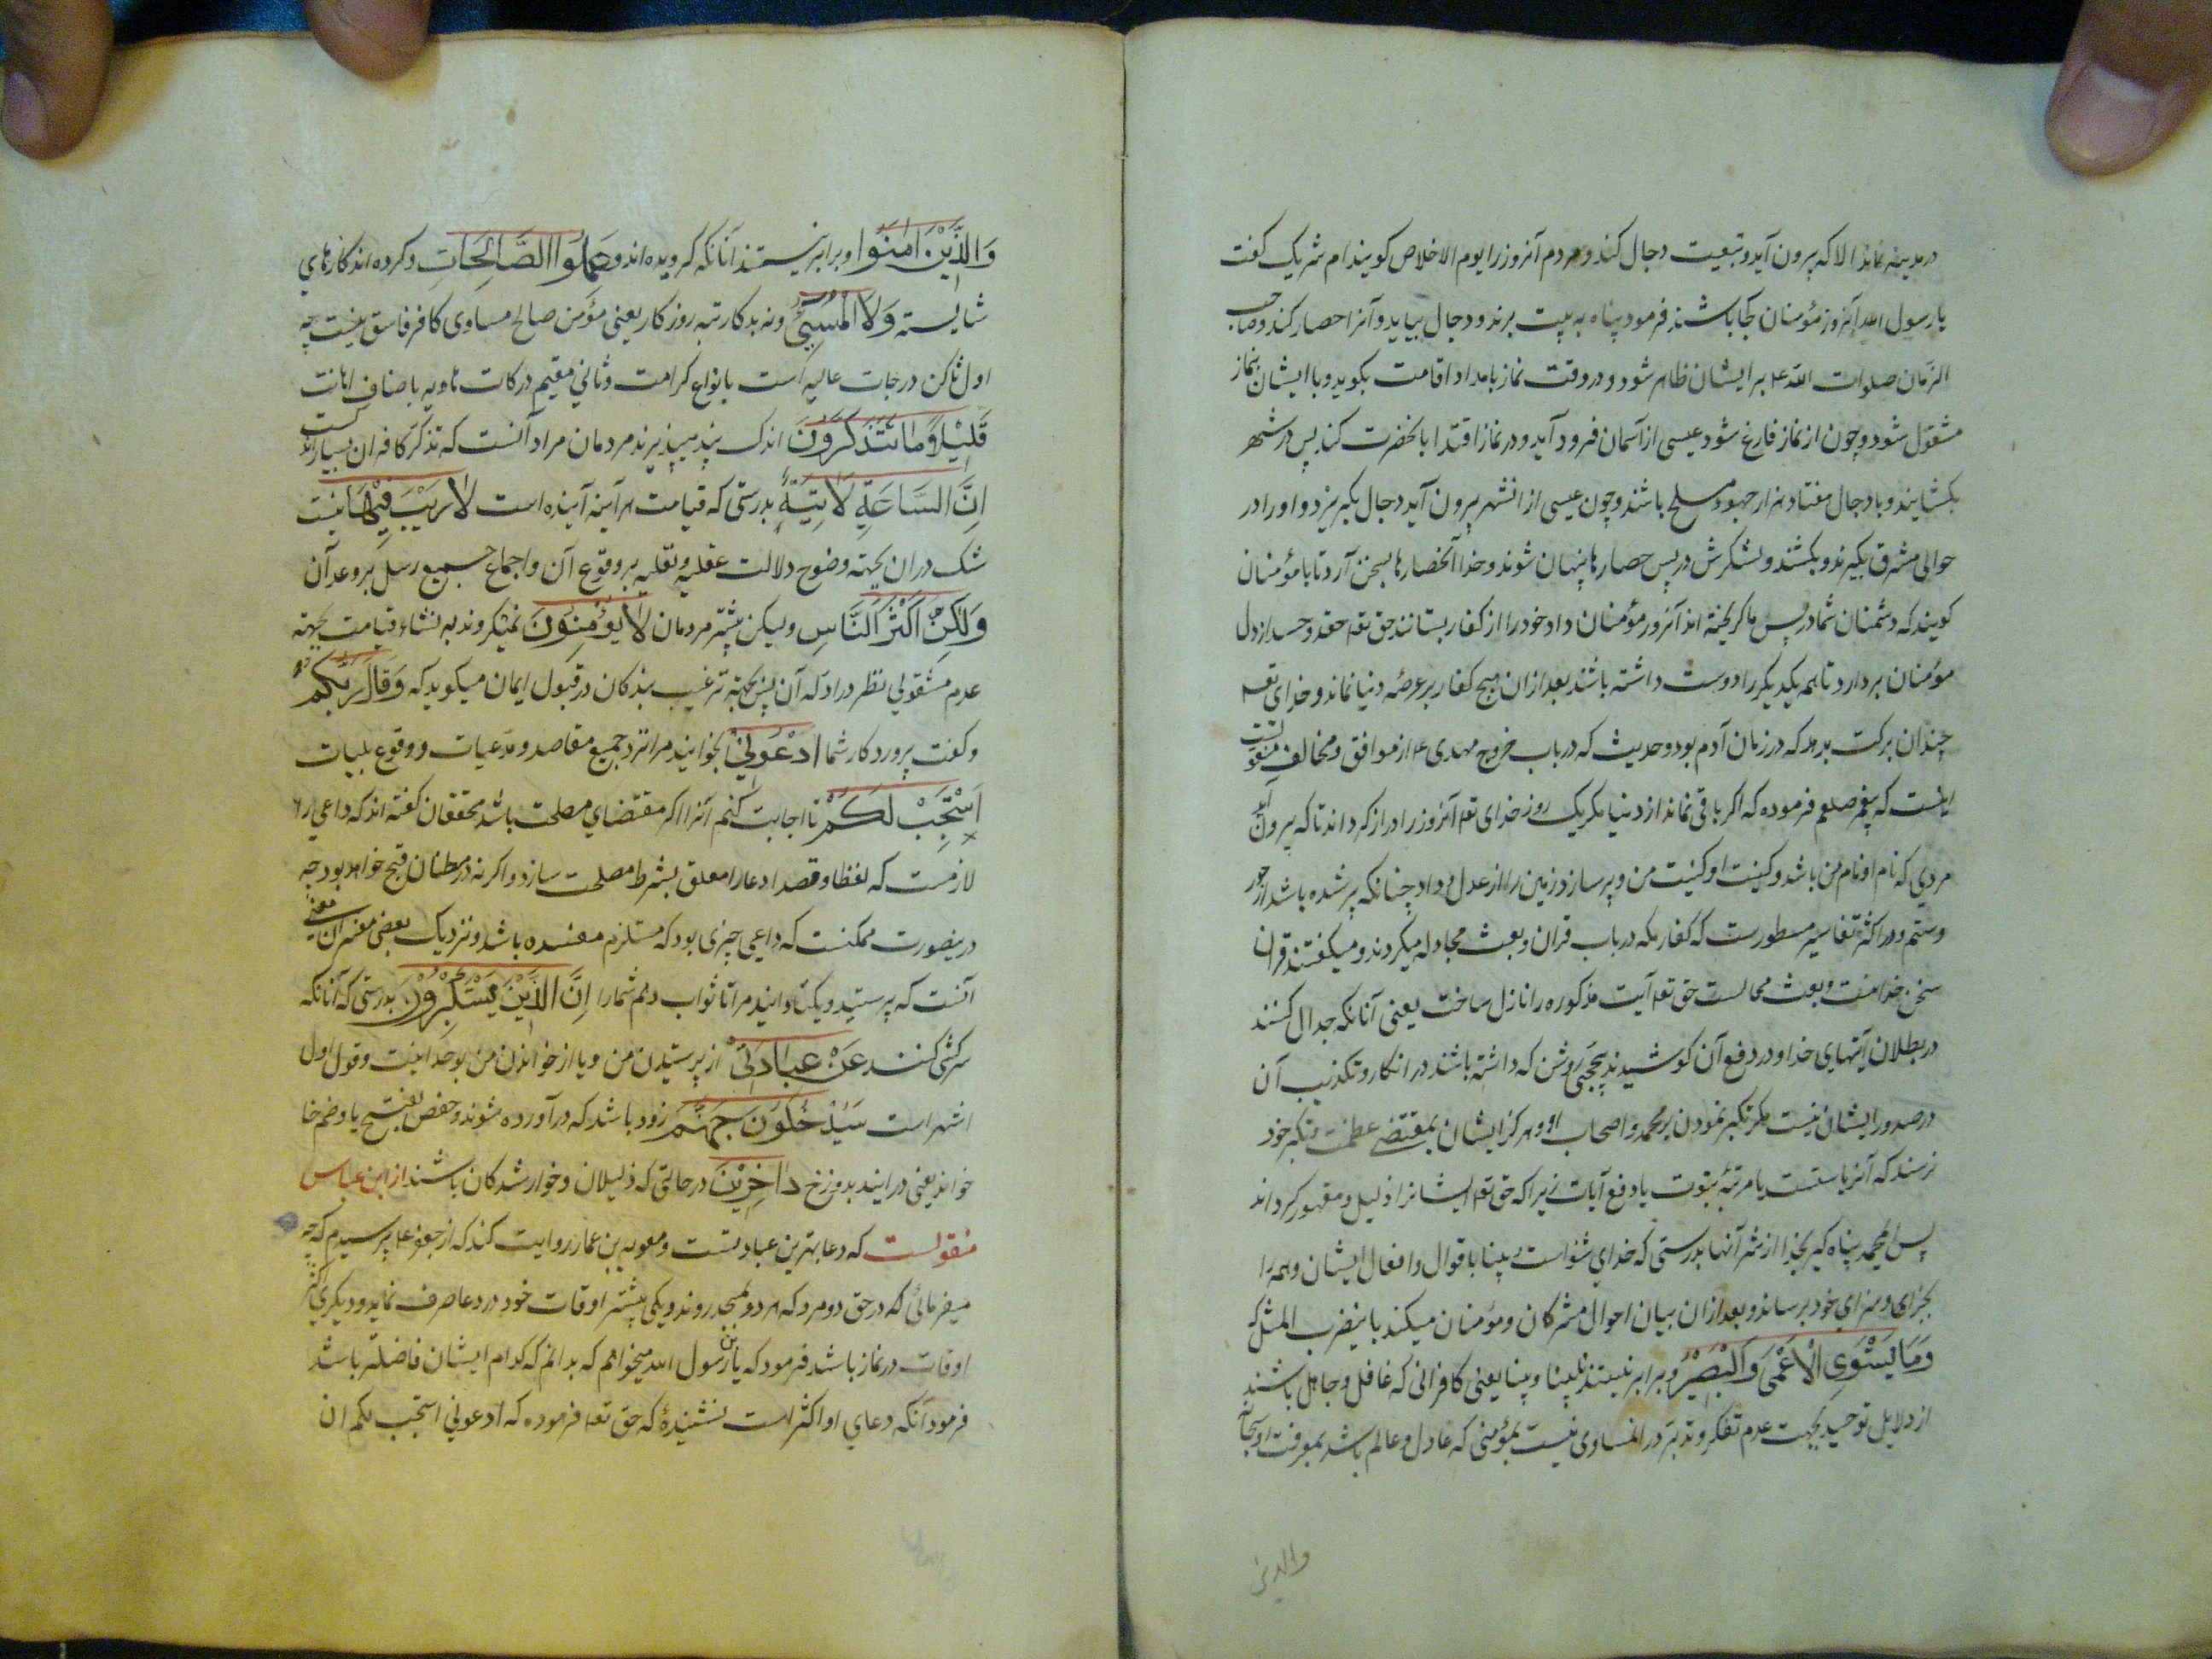 در مدینه نماند الا که بیرون آید و تبعیت دجال کند و مردم آنروز را یوم الاخلاص کویند ام شریک کفت
یا رسول الله آنروز مؤمنان کجا باشند فرمود پناه به بیت برند و دجال بیاید و آنرا حصار کند و صاحب
الزمان صلوات الله ع بر ایشان ظاهر شود و در وقت نماز بامداد اقامت بکوید و با ایشان بنماز
مشغول شود و چون از نماز فارغ شود عیسی از آسمان فرود آید و در نماز اقتدا بانحضرت کند پس در شهر
بکشایند و با دجال هفتاد هزار جهود مسلح باشند و چون عیسی از انشهر بیرون آید دجال بکریزد و او را در
حوالی مشرق بکیرند و بکشند و لشکرش در پس حصارها پنهان شوند و خدا آنحصارها بسخن آرد تا با مؤمنان
کویند که دشمنان شما در پس ما کریخته اند آنروز مؤمنان داد خود را از کفار بستانند حق تع حقد و حسد از دل
مؤمنان بردارد تا هم یکدیکر را دوست داشته باشند بعد از ان هیچ کفار بر عرصه دنیا نماند و خدای تع
چندان برکت بدهد که در زمان آدم بود و حدیث که در باب خروج مهدی ع از موافق و مخالف منقولست
اینست که پیغمبر صلعم فرموده که اکر باقی نماند از دنیا مکر یک روز خدای تع آنروز را دراز کرداند تا که بیرون آید
مردی که نام او نام من باشد و کنیت او کنیت من و پر سازد زمین را از عدل و داد چنانکه پر شده باشد از جور
و ستم و در اکثر تفاسیر مسطورست که کفار مکه در باب قران و بعث مجادله میکردند و میکفتند قران
سخن خدا نیست و بعث محالست حق تع آیت مذکوره را نازل ساخت یعنی آنانکه جدال کنند
در بطلان آیتهای خدا و در دفع آن کوشیدند بحجتی روشن که داشته باشند در انکار و تکذیب آن
در صدور ایشان نیست مکر تکبر نمودن بر محمد و اصحاب او و هرکز ایشان بمقتضی عظمت و تکبر خود
نرسند که آن ریاستست یا مرتبه نبوت یا دفع آیات زیرا که حق تع ایشانرا ذلیل و مقهور کرداند
پس ای محمد پناه کیر بخدا از شر آنها بدرستی که خدای شنواست بینا باقوال و افعال ایشان و همه را
بجزای و سزای خود برساند و بعد از ان بیان احوال مشرکان و مؤمنان میکند باین ضرب المثل که
وَمَا يَسْتَوِي الْاَعْمٰى وَالْبَصِيْرُ و برابر نیستند نابینا و بینا یعنی کافرانی که غافل و جاهل باشند
از دلایل توحید بجهت عدم تفکر و تدبر در ان مساوی نیست بمؤمنی که عادل و عالم باشد بمعرفت او سبحانه
والذین
وَالَّذِيْنَ اٰمَنُوا و برابر نیستند آنانکه کرویده اند و عَمِلُوا الصَّالِحَاتِ و کرده اند کارهای
شایسته وَلَا الْمُسِيْٓءُ و نه بدکار تبه روزکار یعنی مؤمن صالح مساوی کافر فاسق نیست چه
اول ساکن درجات عالیه است بانواع کرامت و ثانی مقیم درکات هاویه باصناف اهانت
قَلِيْلًا مَا تَتَذَكَّرُوْنَ اندک پند میپذیرند مردمان مراد آنست که تذکر کافران بسیار اندکست
اِنَّ السَّاعَةَ لَاٰتِيَةٌ بدرستی که قیامت هر آینه آینده است لَا رَيْبَ فِيْهَا نیست
شک در ان بجهته وضوح دلالت عقلیه و نقلیه بر وقوع آن و اجماع جمیع رسل بر وعد آن
وَلٰكِنَّ اَكْثَرَ النَّاسِ ولیکن بیشتر مردمان لَا يُؤْمِنُوْنَ نمیکروند به نشاء قیامت بجهته
عدم مشغولی نظر در ادله آن پس بجهته ترغیب بندکان در قبول ایمان میکوید که وَقَالَ رَبُّكُمُ
و کفت پروردکار شما ادْعُوْنِيْ بخوانید مرا نزد جمیع مقاصد و مدعیات و وقوع بلیات
اَسْتَجِبْ لَكُمْ تا اجابت کنم آنرا اکر مقتضای مصلحت باشد محققان کفته اند که داعی را
لازمست که لفظا و قصدا دعا را معلق بشرط مصلحت سازد و اکرنه در مظنان قبح خواهد بود چه
درینصورت ممکنست که داعی چیزی بود که مستلزم مفسده باشد و نزدیک بعضی مفسران معنی
آنست که پرستید و یکتا دانید مرا تا ثواب دهم شما را اِنَّ الَّذِيْنَ يَسْتَكْبِرُوْنَ بدرستی که آنانکه
سرکشی کنند عَنْ عِبَادَتِيْ از پرستیدن من و یا از خواندن من بوحدانیت و قول اول
اشهر است سَيَدْخُلُوْنَ جَهَنَّمَ زود باشد که در آورده شوند و حفص بفتح یا و ضم خا
خواند یعنی در ایند بدوزخ دَاخِرِيْنَ در حالتی که ذلیلان و خوارشدکان باشند از ابن عباس
منقولست که دعا بهترین عبادتست و معویه بن عمار روایت کند که از جعفر ع پرسیدم که چه
میفرمائی که در حق دو مرد که هر دو بمسجد روند و یکی بیشتر اوقات خود در دعا صرف نماید و دیکری اکثر
اوقات در نماز باشد فرمود که یابن رسول الله میخواهم که بدانم که کدام ایشان فاضلتر باشد
فرمود آنکه دعای او اکثر است نشنیدهٔ که حق تع فرموده که ادعونی استجب لکم ان